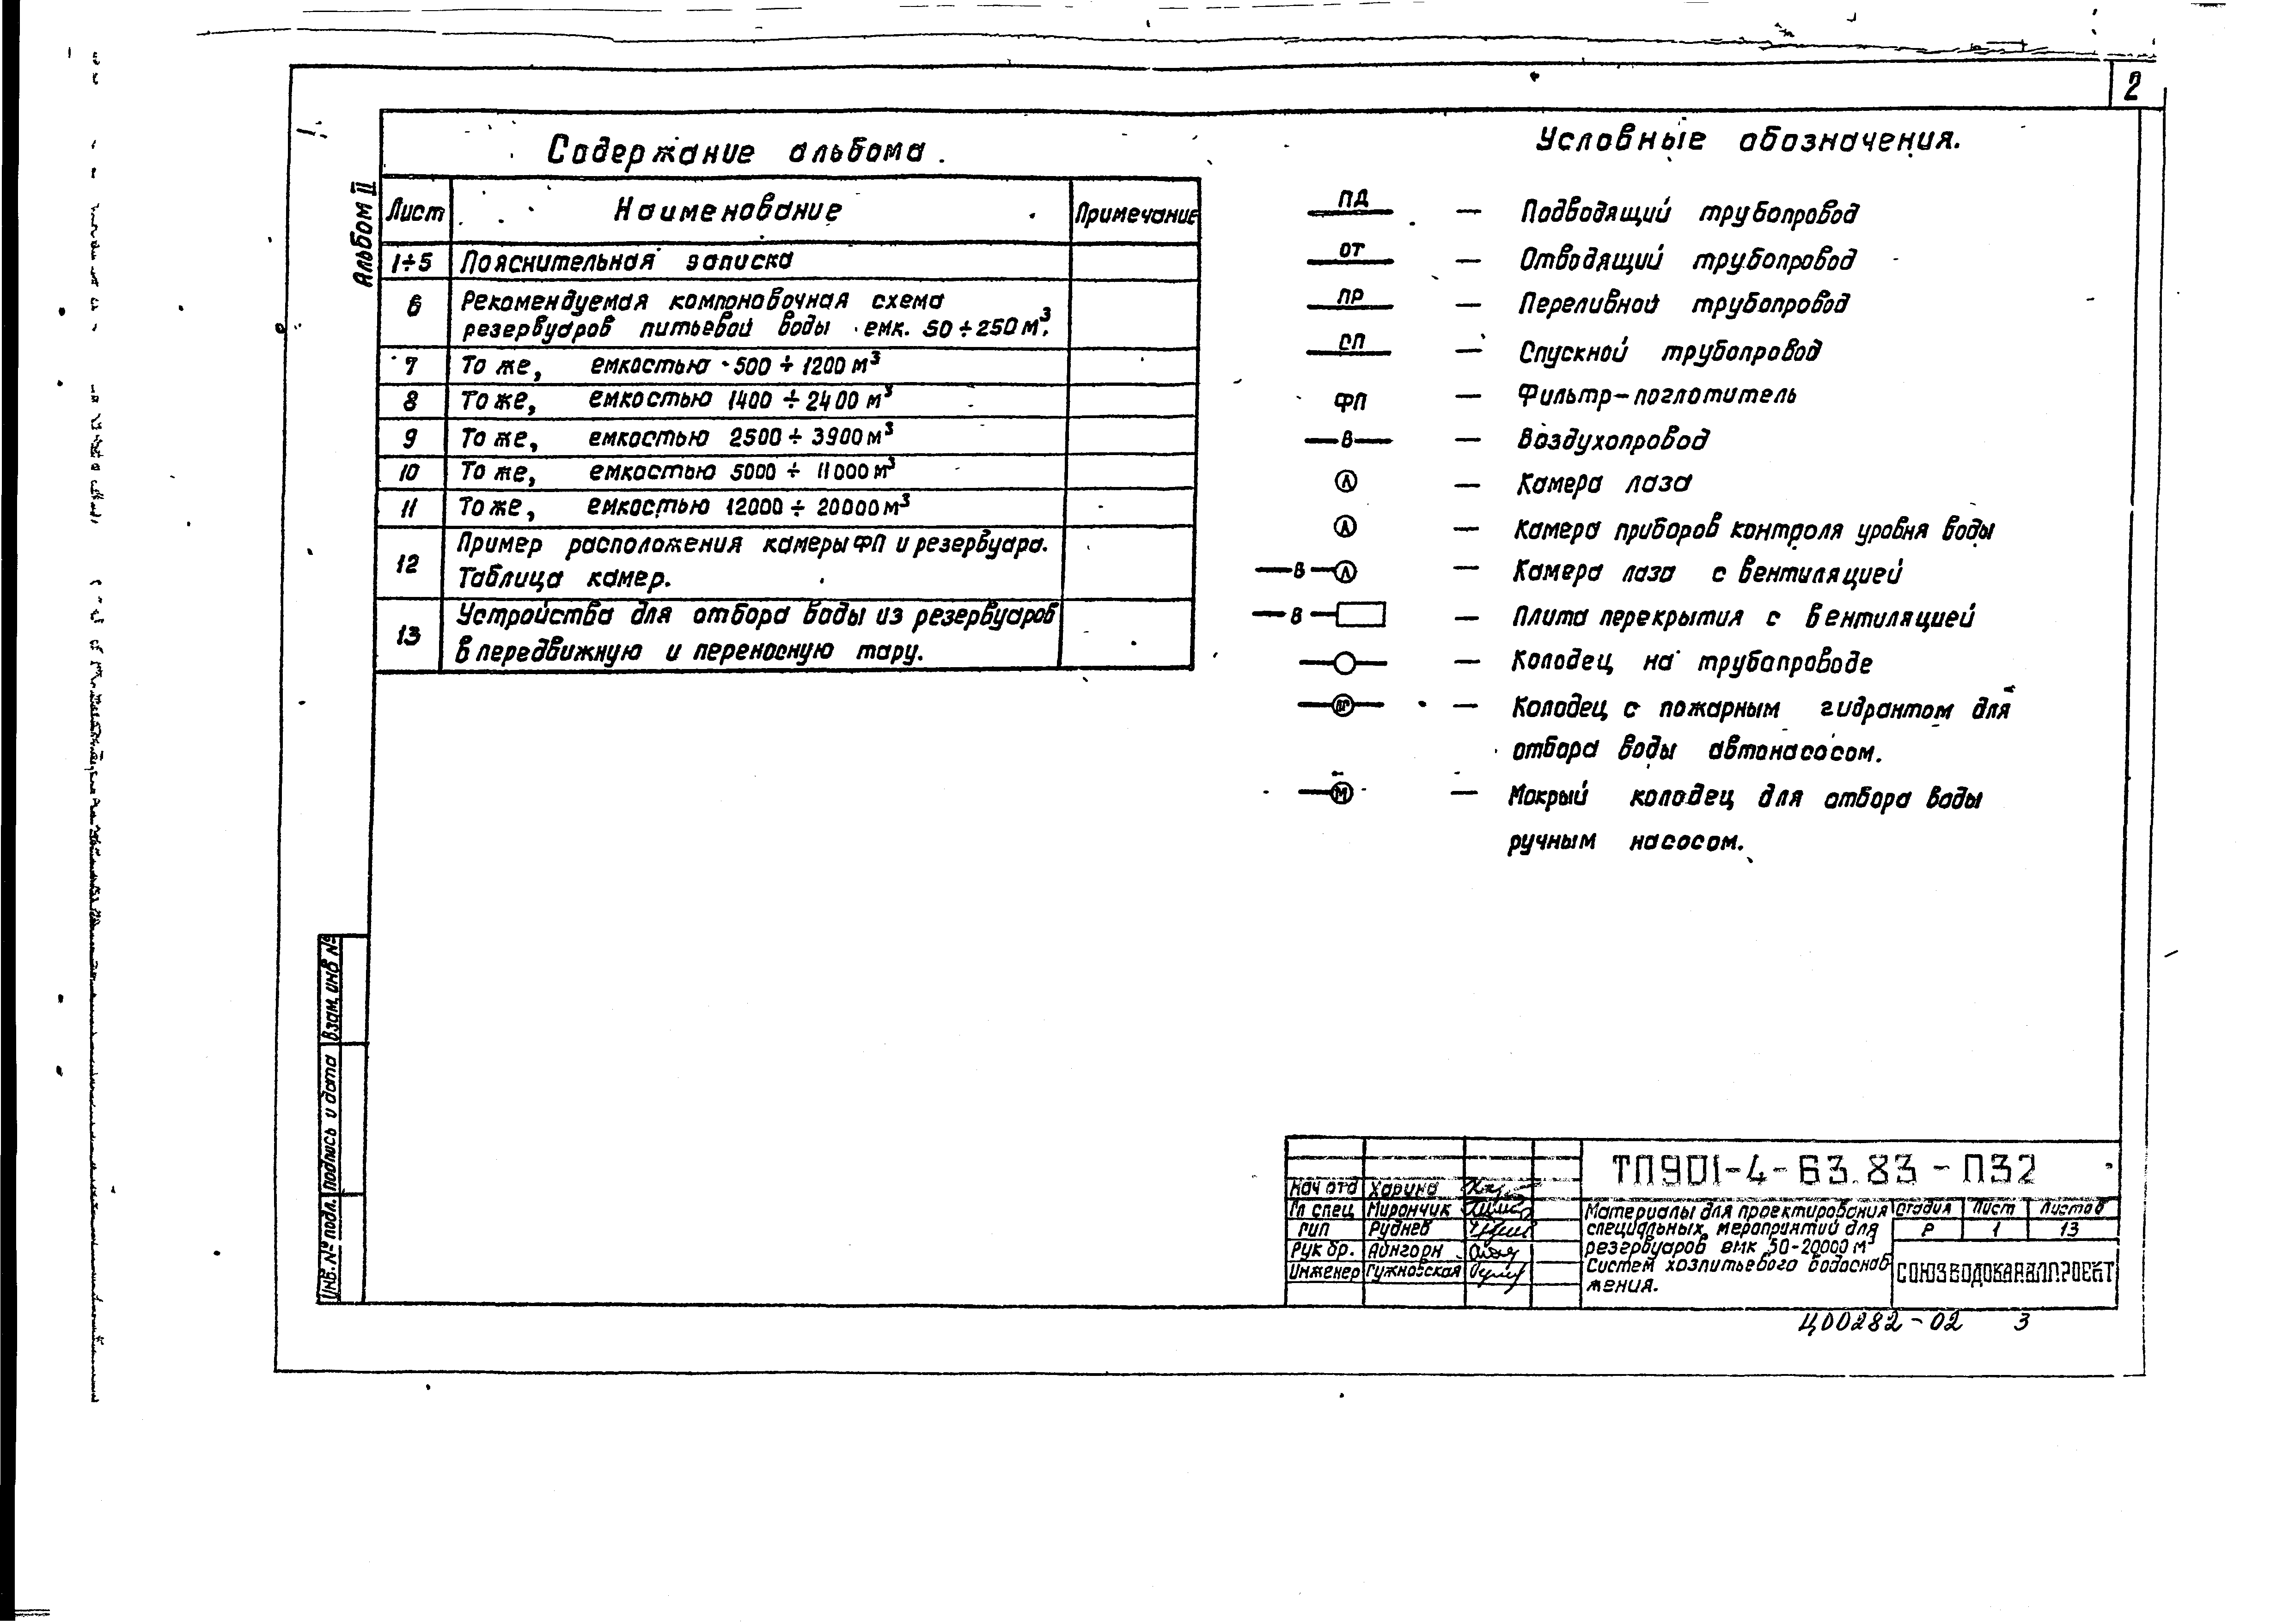 2
Альбом II
Содержание альбома.
Лист Наименование Примечание
1÷5 Пояснительная записка
6 Рекомендуемая компоновочная схема
резервуаров питьевой воды емк. 50÷250 м³.
7 То же, емкостью 500 ÷ 1200 м³
8 То же, емкостью 1400 ÷ 2400 м³
9 То же, емкостью 2500 ÷ 3900 м³
10 То же, емкостью 5000 ÷ 11000 м³
11 То же, емкостью 12000 ÷ 20000 м³
12 Пример расположения камеры ФП и резервуара.
Таблица камер.
13 Устройства для отбора воды из резервуаров
в передвижную и переносную тару.
Условные обозначения.
ПД — Подводящий трубопровод
ОТ — Отводящий трубопровод
ПР — Переливной трубопровод
СП — Спускной трубопровод
ФП — Фильтр-поглотитель
В — Воздухопровод
Л — Камера лаза
А — Камера приборов контроля уровня воды
В Л — Камера лаза с вентиляцией
В — Плита перекрытия с вентиляцией
— Колодец на трубопроводе
ПГ — Колодец с пожарным гидрантом для
отбора воды автонасосом.
М — Мокрый колодец для отбора воды
ручным насосом.
Взам. инв №
Подпись и дата
Инв. № подл.
ТП901-4-63.83-ПЗ2
Нач отд Харина
Гл спец Мирончик
ГИП Руднев
Рук бр. Айнгорн
Инженер Гужновская
Материалы для проектирования
специальных мероприятий для
резервуаров емк 50-20000 м³
систем хозпитьевого водоснаб
жения.
Стадия Лист Листов
Р 1 13
СОЮЗВОДОКАНАЛПРОЕКТ
Ц00282-02 3